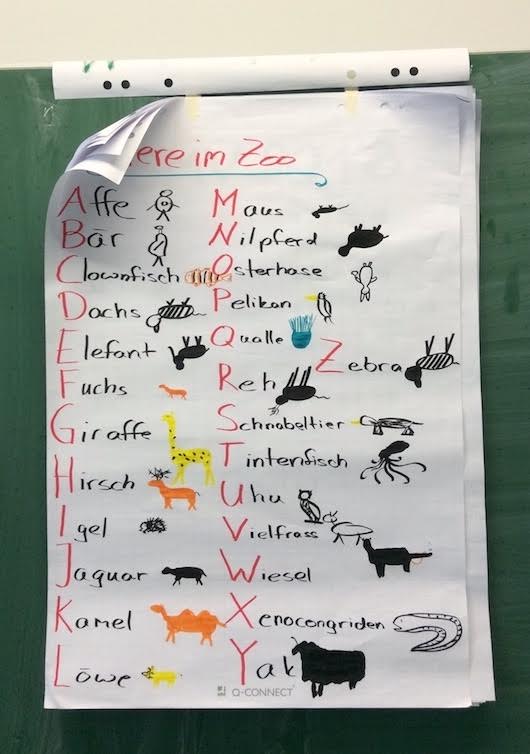 ere im Zoo
Affe
Bär
Clownfisch
Dachs
Elefant
Fuchs
Giraffe
Hirsch
Igel
Jaguar
Kamel
Löwe
Maus
Nilpferd
Osterhase
Pelikan
Qualle
Reh
Schnabeltier
Tintenfisch
Uhu
Vielfrass
Wiesel
Xenocongriden
Yak
Zebra
Q-CONNECT